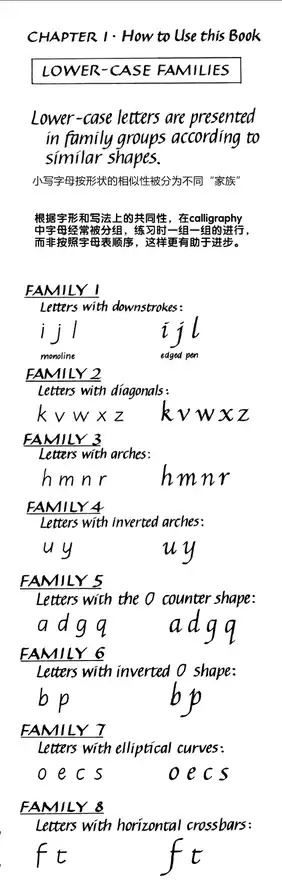 CHAPTER 1 · How to Use this Book
LOWER-CASE FAMILIES
Lower-case letters are presented
in family groups according to
similar shapes.
小写字母按形状的相似性被分为不同“家族”
根据字形和写法上的共同性，在calligraphy
中字母经常被分组，练习时一组一组的进行，
而非按照字母表顺序，这样更有助于进步。
FAMILY 1
Letters with downstrokes:
i j l i j l
monoline edged pen
FAMILY 2
Letters with diagonals:
k v w x z k v w x z
FAMILY 3
Letters with arches:
h m n r h m n r
FAMILY 4
Letters with inverted arches:
u y u y
FAMILY 5
Letters with the O counter shape:
a d g q a d g q
FAMILY 6
Letters with inverted O shape:
b p b p
FAMILY 7
Letters with elliptical curves:
o e c s o e c s
FAMILY 8
Letters with horizontal crossbars:
f t f t